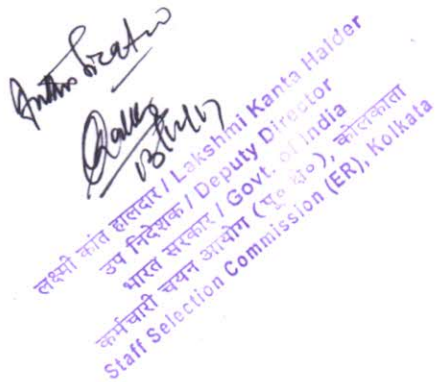 13/12/17
लक्ष्मी कांत हालदार / Lakshmi Kanta Halder
उप निदेशक / Deputy Director
भारत सरकार / Govt. of India
कर्मचारी चयन आयोग (पू० क्षे०), कोलकाता
Staff Selection Commission (ER), Kolkata